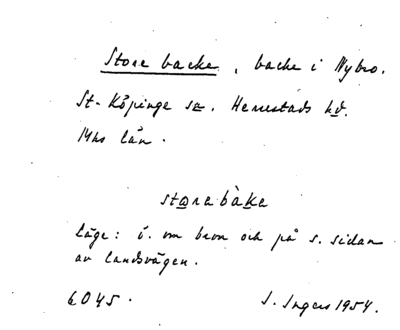 Store backe, backe i Nybro.
St. Köpinge sn. Herrestads hd.
Mhs län.
storebàke
Läge: ö. om bron och på s. sidan
av landsvägen.
6045.
I. Ingers 1954.